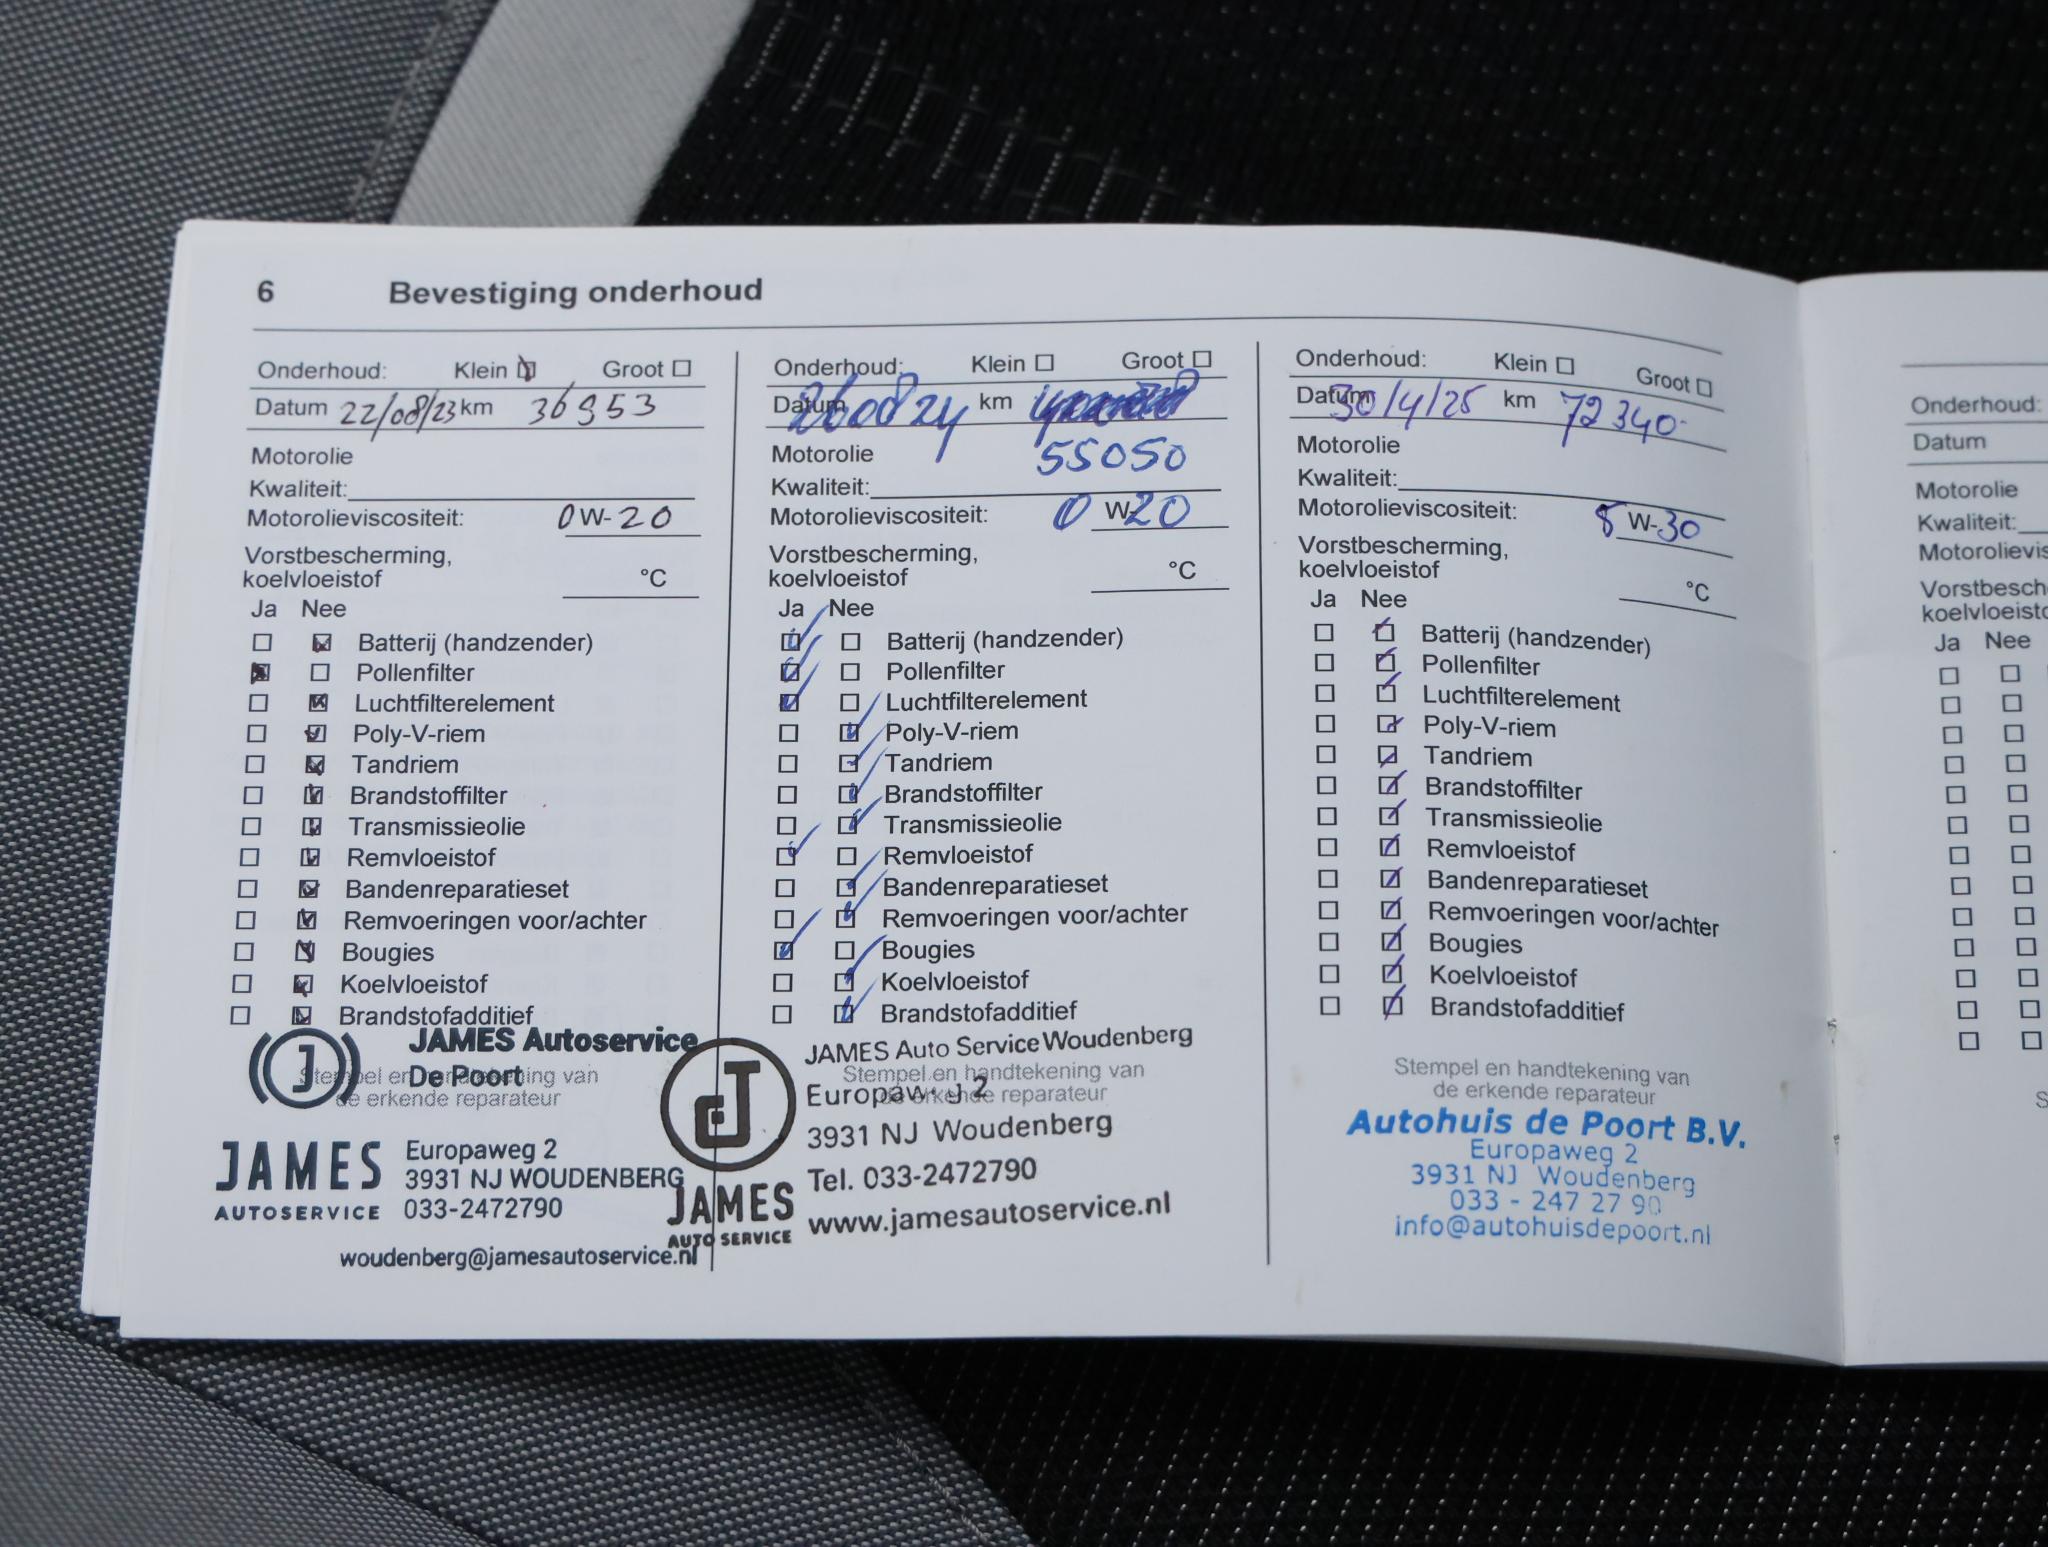 6 Bevestiging onderhoud
Onderhoud: Klein Groot
Datum 22/08/23 km 36953
Motorolie
Kwaliteit:
Motorolieviscositeit: 0W-20
Vorstbescherming,
koelvloeistof °C
Ja Nee
Batterij (handzender)
Pollenfilter
Luchtfilterelement
Poly-V-riem
Tandriem
Brandstoffilter
Transmissieolie
Remvloeistof
Bandenreparatieset
Remvoeringen voor/achter
Bougies
Koelvloeistof
Brandstofadditief
Stempel en handtekening van
de erkende reparateur
JAMES Autoservice
De Poort
JAMES
AUTOSERVICE
Europaweg 2
3931 NJ WOUDENBERG
033-2472790
woudenberg@jamesautoservice.nl
Onderhoud: Klein Groot
Datum 260824 km
55050
Motorolie
Kwaliteit:
Motorolieviscositeit: 0 W-20
Vorstbescherming,
koelvloeistof °C
Ja Nee
Batterij (handzender)
Pollenfilter
Luchtfilterelement
Poly-V-riem
Tandriem
Brandstoffilter
Transmissieolie
Remvloeistof
Bandenreparatieset
Remvoeringen voor/achter
Bougies
Koelvloeistof
Brandstofadditief
Stempel en handtekening van
de erkende reparateur
J
JAMES
AUTO SERVICE
JAMES Auto Service Woudenberg
2
3931 NJ Woudenberg
Tel. 033-2472790
www.jamesautoservice.nl
Onderhoud: Klein Groot
Datum 30/4/25 km 72340-
Motorolie
Kwaliteit:
Motorolieviscositeit: 5 W-30
Vorstbescherming,
koelvloeistof °C
Ja Nee
Batterij (handzender)
Pollenfilter
Luchtfilterelement
Poly-V-riem
Tandriem
Brandstoffilter
Transmissieolie
Remvloeistof
Bandenreparatieset
Remvoeringen voor/achter
Bougies
Koelvloeistof
Brandstofadditief
Stempel en handtekening van
de erkende reparateur
Autohuis de Poort B.V.
Europaweg 2
3931 NJ Woudenberg
033 - 247 27 90
info@autohuisdepoort.nl
Onderhoud:
Datum
Motorolie
Kwaliteit:
Ja Nee